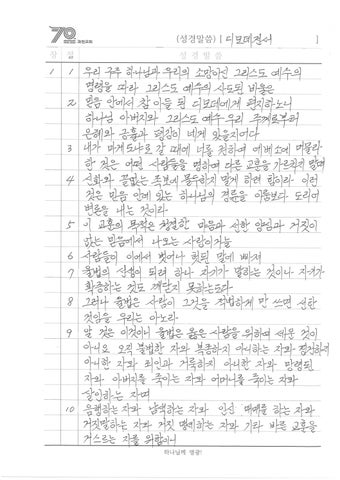 70 제천교회
(성경말씀) [ 디모데전서 ]
장 절 성 경 말 씀
1 1 우리 구주 하나님과 우리의 소망이신 그리스도 예수의
명령을 따라 그리스도 예수의 사도된 바울은
2 믿음 안에서 참 아들 된 디모데에게 편지하노니
하나님 아버지와 그리스도 예수 우리 주께로부터
은혜와 긍휼과 평강이 네게 있을지어다
3 내가 마게도냐로 갈 때에 너를 권하여 에베소에 머물라
한 것은 어떤 사람들을 명하여 다른 교훈을 가르치지 말며
4 신화와 끝없는 족보에 몰두하지 말게 하려 함이라 이런
것은 믿음 안에 있는 하나님의 경륜을 이룸보다 도리어
변론을 내는 것이라
5 이 교훈의 목적은 청결한 마음과 선한 양심과 거짓이
없는 믿음에서 나오는 사랑이거늘
6 사람들이 이에서 벗어나 헛된 말에 빠져
7 율법의 선생이 되려 하나 자기가 말하는 것이나 자기가
확증하는 것도 깨닫지 못하는도다
8 그러나 율법은 사람이 그것을 적법하게만 쓰면 선한
것임을 우리는 아노라
9 알 것은 이것이니 율법은 옳은 사람을 위하여 세운 것이
아니요 오직 불법한 자와 복종하지 아니하는 자와 경건하지
아니한 자와 죄인과 거룩하지 아니한 자와 망령된
자와 아버지를 죽이는 자와 어머니를 죽이는 자와
살인하는 자며
10 음행하는 자와 남색하는 자와 인신 매매를 하는 자와
거짓말하는 자와 거짓 맹세하는 자와 기타 바른 교훈을
거스르는 자를 위함이니
하나님께 영광!